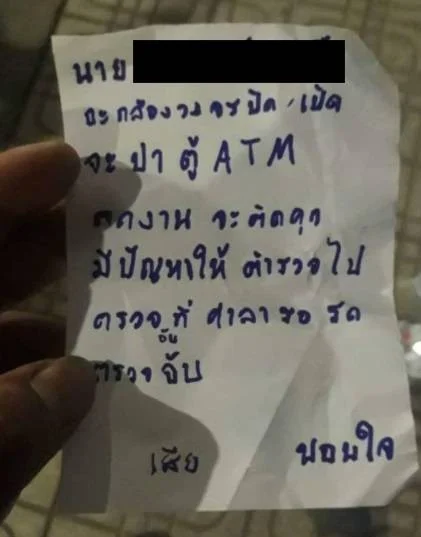 นาย
จะกล้องวงจรปิด/เปิด
จะปาตู้ ATM
ตกงาน จะติดคุก
มีปัญหาให้ ตำรวจไป
ตรวจ ที่ ศาลารอ รถ
ตรวจจับ
เสีย พอนใจ